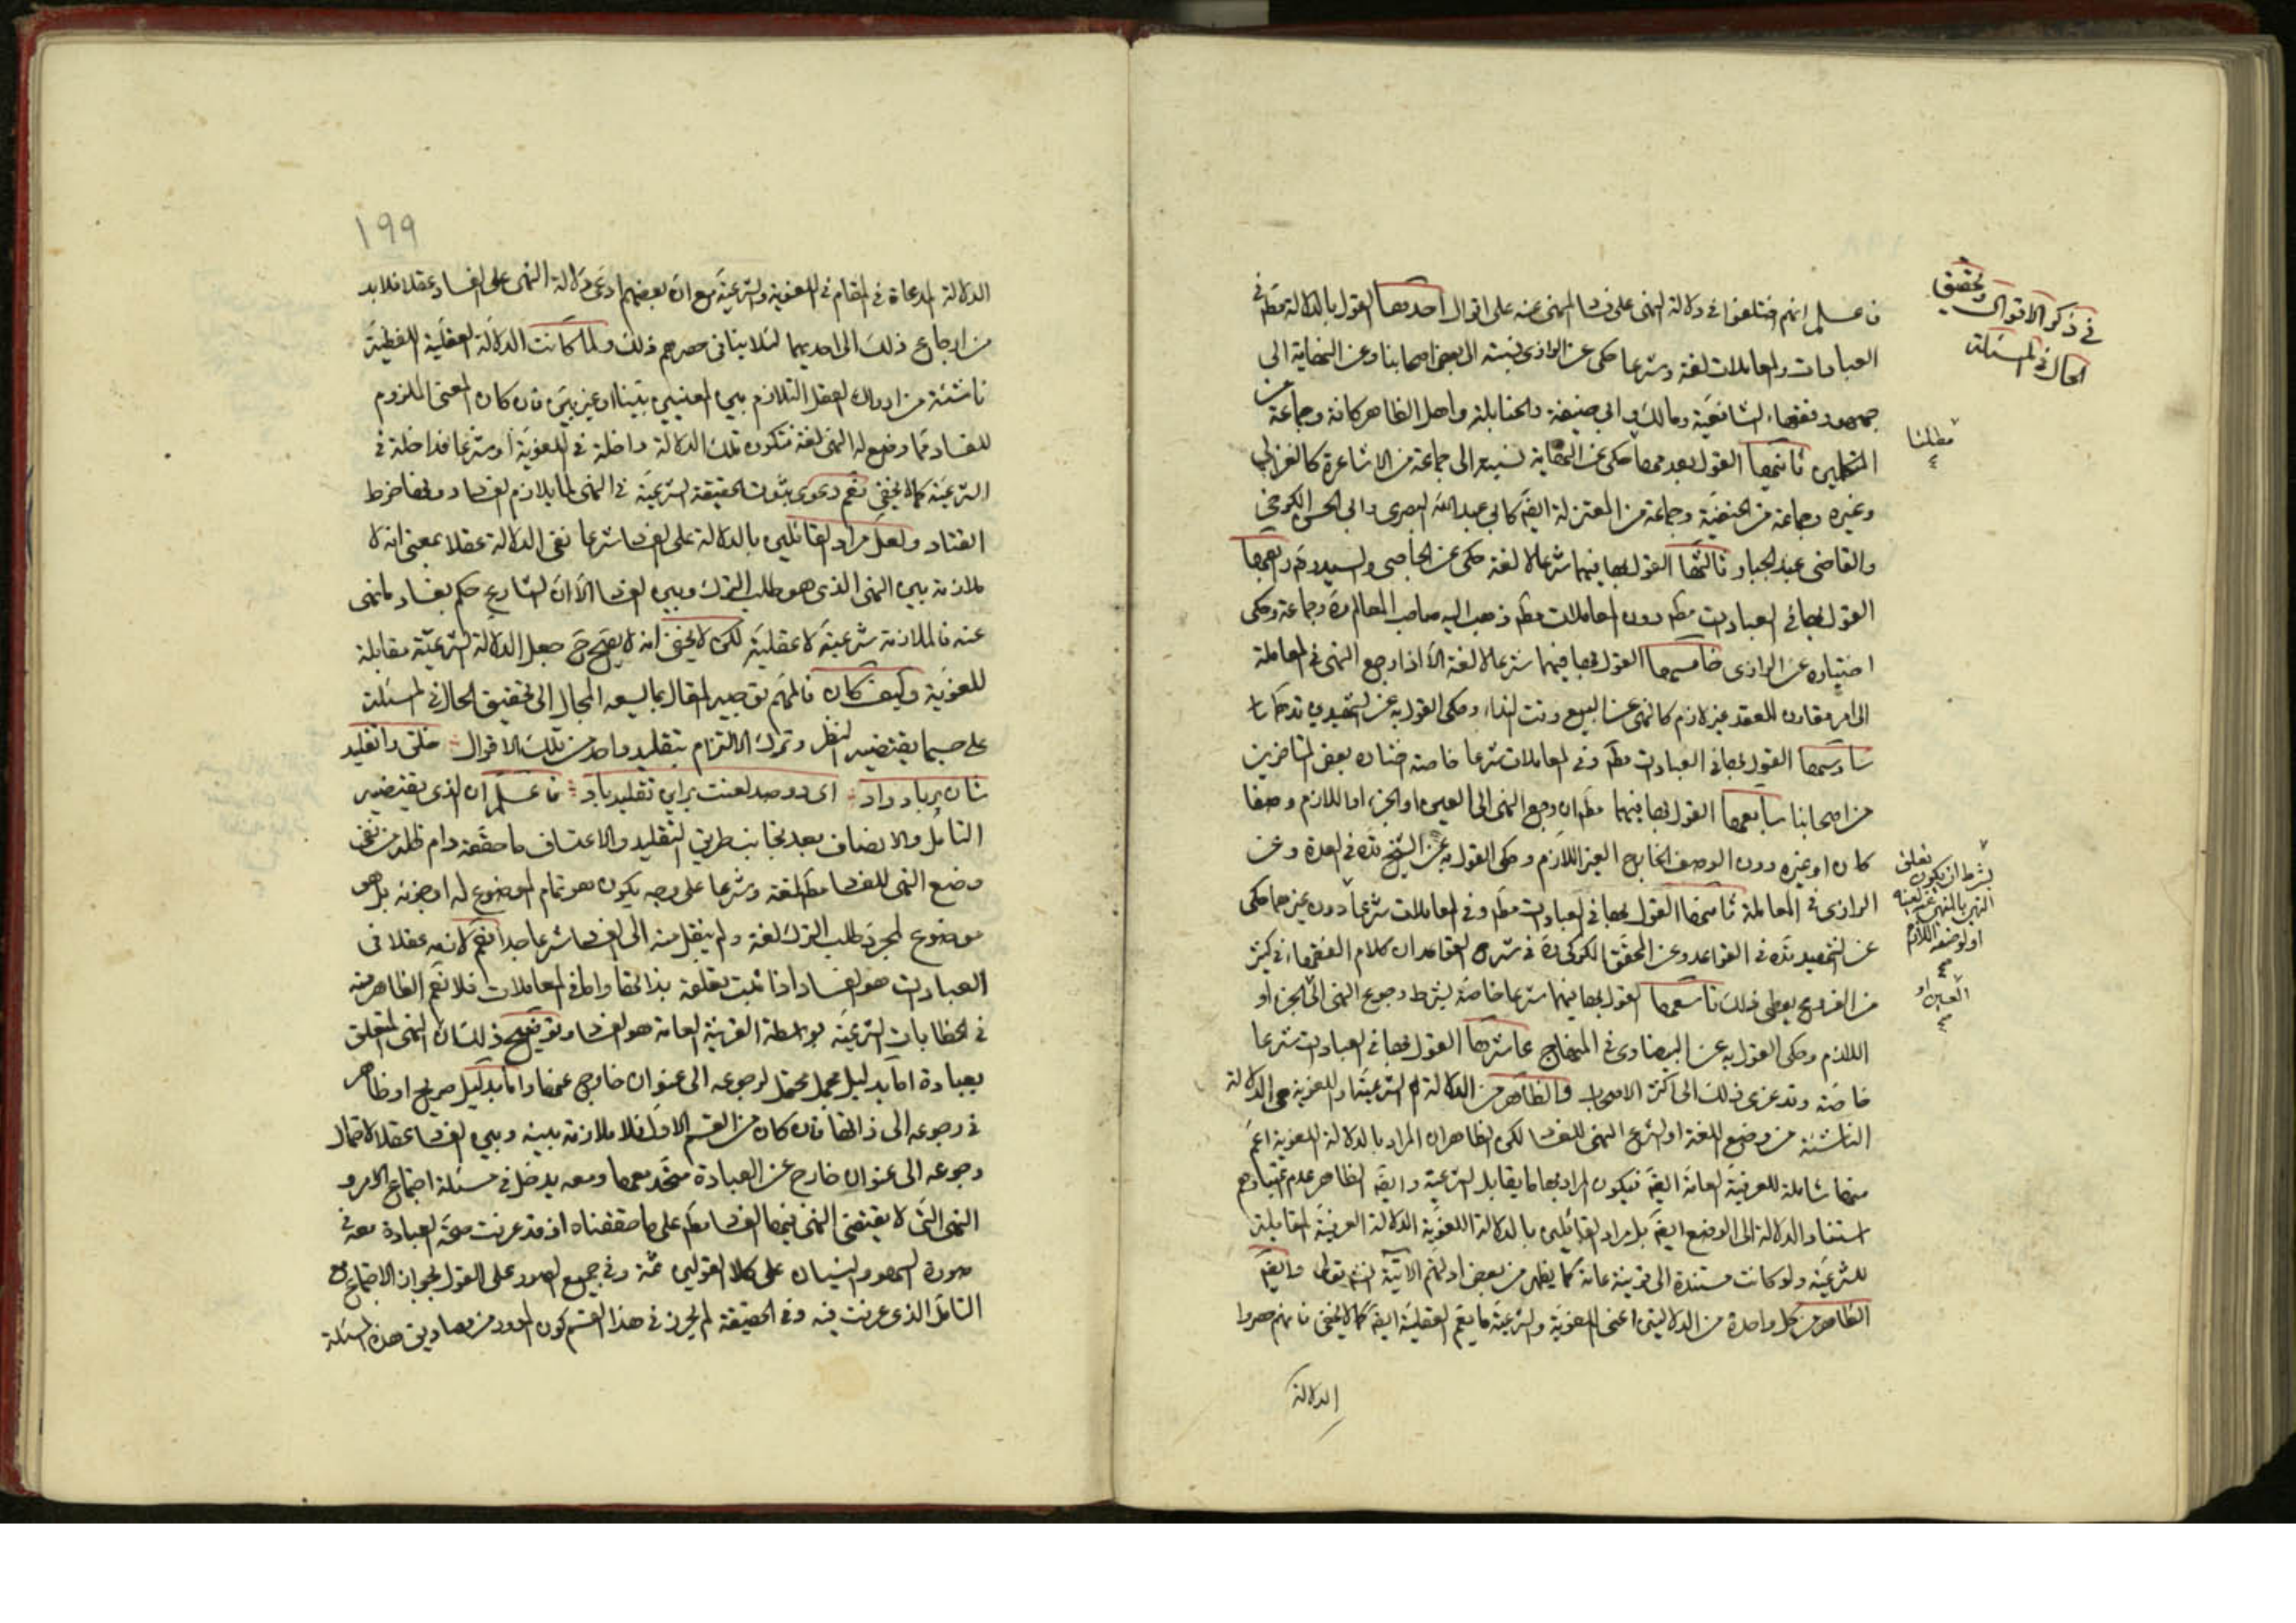 في ذكر الاقوال وتحقيق
الحال في المسئلة
فاعلم انهم اختلفوا في دلالة النهى على فساد المنهى عنه على اقوال احدها القول بالدلالة مطم في
العبادات والمعاملات لغة وشرعا حكى عن الرازى نسبته الى بعض اصحابنا وعن النهاية الى
جمهور فقهاء الشافعية ومالك وابي حنيفة والحنابلة واهل الظاهر كافة وجماعة من
المتكلمين ثانيها القول بعدمها مطلقا حكى عن النهاية نسبته الى جماعة من الاشاعرة كالغزالي
وغيره وجماعة من الحنفية وجماعة من المعتزلة ايضا كابي عبد الله البصرى وابي الحسن الكرخي
والقاضى عبد الجبار ثالثها القول بها فيهما شرعا لا لغة حكى عن الحاجبى والسيد ره رابعها
القول بها في العبادات مطم دون المعاملات مطم ذهب اليه صاحب المعالم ره وجماعة وحكى
اختياره عن الرازى خامسها القول بها فيهما شرعا لا لغة الا اذا رجع النهى في المعاملة
الى امر مقارن للعقد غير لازم كالنهى عن البيع وقت النداء وحكى القول به عن الشهيدين قدهما
سادسها القول بها في العبادات مطم وفي المعاملات شرعا خاصة اختاره بعض المتاخرين
من اصحابنا سابعها القول بها فيهما مطم ان رجع النهى الى العين او الجزء او اللازم وصفا
كان او غيره دون الوصف الخارج الغير اللازم وحكى القول به عن الشيخ قده في العدة وعن
الرازى في المعالم ثامنها القول بها في العبادات مطم وفي المعاملات شرعا دون غيرهما حكى
بشرط ان يكون تعلق
النهى بالمنهى عنه لعينه
او لوصفه اللازم
عن الشهيد قده في القواعد وعن المحقق الكركى ره في شرح القواعد ان كلام الفقهاء في كثير
من الفروع يعطى ذلك تاسعها القول بها فيهما شرعا خاصة بشرط رجوع النهى الى العين او الجزء او
اللازم وحكى القول به عن البيضاوى في المنهاج عاشرها القول بها في العبادات شرعا
خاصة وقد عزى ذلك الى اكثر الاصحاب فالظاهر من الدلالة الشرعية او اللغوية هى الدلالة
الناشئة من وضع اللغة او الشرع النهى للفساد لكن الظاهر ان المراد بالدلالة اللغوية اعم
منها شاملة للعرفية العامة ايضا فيكون المراد بها ما يقابل الشرعية وايضا الظاهر عدم اعتبارهم
استناد الدلالة الى الوضع ايضا بل مراد القائلين بالدلالة اللغوية الدلالة العرفية المقابلة
للشرعية ولو كانت مستندة الى قرينة عامة كما يظهر من بعض ادلتهم الآتية وايضا
الظاهر من كل واحدة من الدلالتين اعنى اللغوية والشرعية ما يعم العقلية ايضا كما لا يخفى فانهم حصروا
الدلالة
١٩٩
الدلالة المدعاة في المقام في اللغوية والشرعية مع ان بعضهم ادعى دلالة النهى على الفساد عقلا فلابد
من ارجاع ذلك الى احديهما لئلا ينافى حصرهم ذلك ولما كانت الدلالة العقلية اللفظية
ناشئة من ادراك العقل التلازم بين المعنيين بينا او غير بين فان كان المعنى الملزوم
للفساد مما وضع له النهى لغة فتكون تلك الدلالة داخلة في اللغوية او شرعا فداخلة في
الشرعية كما لا يخفى نعم دعوى ثبوت الحقيقة الشرعية في النهى لما يلازم الفساد دونها خرط
القتاد ولعل مراد القائلين بالدلالة على الفساد شرعا نفى الدلالة عقلا بمعنى انه لا
ملازمة بين النهى الذى هو طلب الترك وبين الفساد الا ان الشارع حكم بفساد المنهى
عنه فالملازمة شرعية لا عقلية لكن لا يخفى انه لا يصح ح جعل الدلالة الشرعية مقابلة
للغوية وكيف كان فالمهم توجيه المقال بما يسعه المجال الى تحقيق الحال في المسئلة
على حسبما يقتضيه النظر وترك الالتزام بتقليد واحد من تلك الاقوال خلق را تقليد
شان بر باد داد اى دو صد لعنت براين تقليد باد فاعلم ان الذى يقتضيه
التامل والانصاف بعد مجانبة طريق التقليد والاعتساف ما حققه دام ظله من نفى
وضع النهى للفساد مطم لغة وشرعا على وجه يكون هو تمام الموضوع له او جزئه بل هو
موضوع لمجرد طلب الترك لغة ولم ينقل منه الى الفساد شرعا جدا نعم لازمه عقلا في
العبادات هو الفساد اذا ثبت تعلقه بذاتها واما في المعاملات فلا نعم الظاهر منه
في الخطابات الشرعية بواسطة القرينة العامة هو الفساد وتوضيح ذلك ان النهى المتعلق
بعبادة اما بدليل مجمل محتمل لرجوعه الى عنوان خارج عنها واما بدليل صريح او ظاهر
في رجوعه الى ذاتها فان كان من القسم الاول فلا ملازمة بينه وبين الفساد عقلا لاحتمال
رجوعه الى عنوان خارج عن العبادة متحد معها ومعه يدخل في مسئلة اجتماع الامر و
النهى التى لا يقتضى النهى فيها الفساد مطم على ما حققناه اذ قد عرفت صحة العبادة معه في
صورة السهو والنسيان على كلا القولين ثمة وفي جميع الصور على القول بجواز الاجتماع مع
التامل الذى عرفت فيه وفي الحقيقة لم يحرز في هذا القسم كون المورد من مصاديق هذه المسئلة